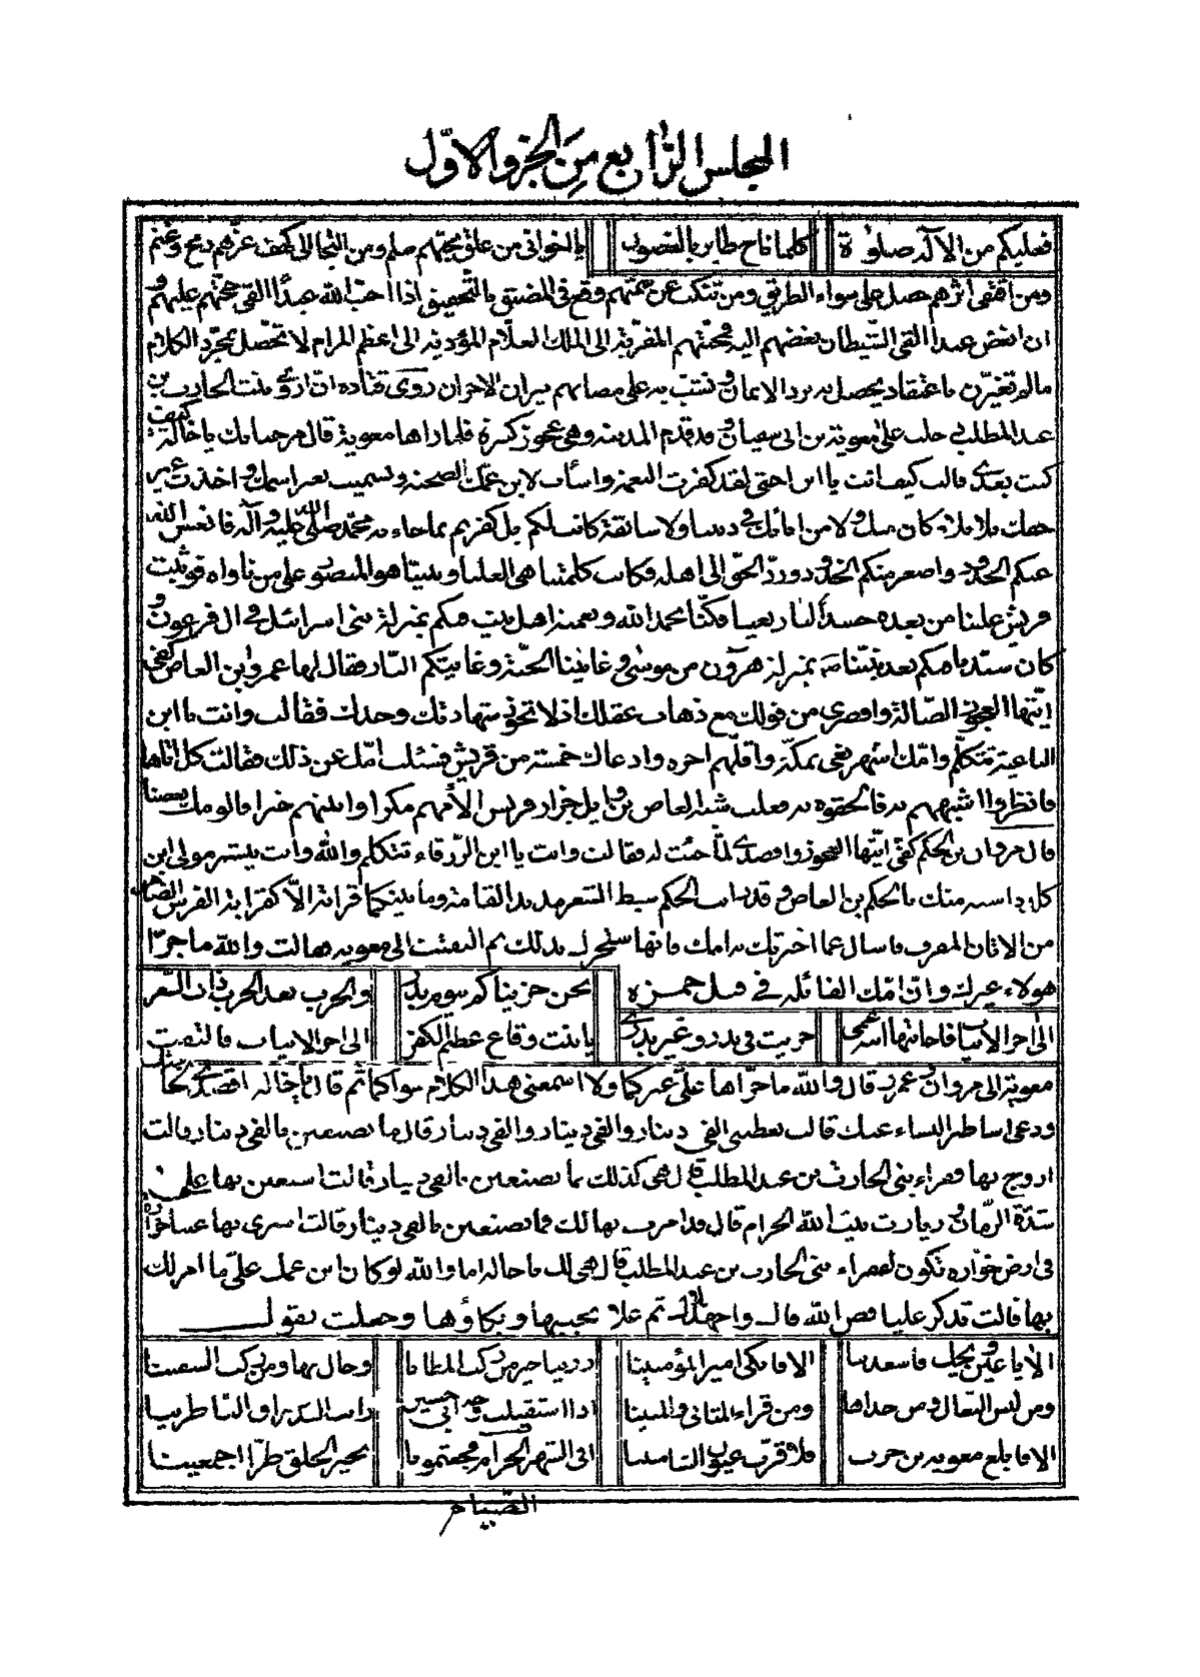 المجلس الرابع من الجزو الاول
فعليكم من الآله صلوٰة كلما ناح طاير بالغصون يا اخواني من علق بمحبتهم سلم ومن التجا الى كهف عزهم ربح وغنم
ومن اقتفى اثرهم حصل على سواء الطريق ومن تنكب عن سمتهم وقع في المضيق بالتحقيق اذا احب الله عبداً القى محبتهم عليه و
ان ابغض عبداً القى الشيطان بغضهم اليه ومحبتهم المقربة الى الملك العلام المؤدية الى اعظم المرام لا تحصل بمجرد الكلام
مالم تقترن باعتقاد يحصل به برد الايمان و تشب به على مصابهم نيران الاحزان روى قتاده ان اروى بنت الحارث بن
عبد المطلب دخلت على معوية بن ابي سفيان وقد قدم المدينه وهي عجوز كبيرة فلما راها معوية قال مرحبا بك يا خالة كيف
كنت بعدي قالت كيف انت يا ابن اختي لقد كفرت النعمة واسأت لابن عمك الصحبه وتسميت بغير اسمك و اخذت غير
حقك بلا بلاء كان منك ولا من ابائك في ديننا ولا سابقة كانت لكم بل كفرتم بما جاء به محمد صلى الله عليه وآله فاتعس الله
منكم الجدود واصعر منكم الخدود ورد الحق الى اهله فكانت كلمتنا هي العليا ونبينا هو المنصور على من ناواه فوثبت
قريش علينا من بعده حسداً لنا وبغيا فكنا بحمد الله ونعمته اهل بيت فيكم بمنزلة بني اسرائيل في ال فرعون و
كان سيدنا فيكم بعد نبينا ص بمنزلة هرون من موسى و غايتنا الجنة وغايتكم النار فقال لها عمرو ابن العاص كفى
ايتها العجوز الضالة واقصري من قولك مع ذهاب عقلك اذ لا تجوز شهادتك وحدك فقالت وانت يا ابن
الباغية تتكلم وامك اشهر بغي بمكة واقلهم اجره وادعاك خمسة من قريش فسئلت امك عن ذلك فقالت كل اتاها
فانظروا اشبههم به فالحقوه به فغلب شبه العاص بن وايل جزار قريش الأمهم مكرا وابينهم خيرا فالومك ببغضنا
قال مروان بن الحكم كفى ايتها العجوز واقصدي لما جئت له فقالت وانت يا ابن الزرقاء تتكلم والله وانت ببشير مولى ابن
كلدة اشبه منك بالحكم بن العاص و قد رايت الحكم سبط الشعر مديد القامة وما بينكما قرابة الا كقرابة الفرس الضامر
من الاتان المقرف فاسال عما اخبرتك به امك فانها ستخبرك بذلك ثم التفتت الى معوية فقالت والله ما جرأ
هولاء غيرك وان امك القائله في قتل حمزه نحن جزيناكم بيوم بدر والحرب بعد الحرب ذات السعر
الى اخر الابيات فاجابتها ابنة عمى خزيت في بدر وغير بدر يا بنت وقاع عظيم الكفر الى اخر الابيات فالتفت
معوية الى مروان و عمرو قال والله ما جرأها علي غيركما ولا اسمعني هذا الكلام سواكما ثم قال يا خاله اقصدي لحاجتك
ودعي اساطير النساء عنك قالت تعطيني الفي دينار والفي دينار والفي دينار قال ما تصنعين بالفي دينار قالت
ازوج بها فقراء بني الحارث بن عبد المطلب قال هي كذلك فما تصنعين بالفي دينار قالت استعين بها على
شدة الزمان و زيارت بيت الله الحرام قال قد امرت بها لك فما تصنعين بالفي دينار وقالت اشري بها عينا خوارة
في ارض خواره تكون لفقراء بني الحارث بن عبد المطلب قال هي لك يا خاله اما والله لو كان ابن عمك علي ما امر لك
بها فقالت تذكر عليا فض الله فاك واجهد بلاك ثم علا نحيبها وبكاؤها وجعلت تقول
الا يا عين ويحك فاسعدينا الا فابكي امير المؤمنينا رزينا خير من ركب المطايا وجال بها ومن ركب السفينا
ومن لبس النعال ومن حذاها ومن قراء المثاني والمبينا اذا استقبلت وجه ابي حسين رايت البدر راق الناظرينا
الا فابلغ معوية بن حرب فلا قرت عيون الشامتينا افي الشهر الحرام فجعتمونا بخير الخلق طرا اجمعينا
الصيام